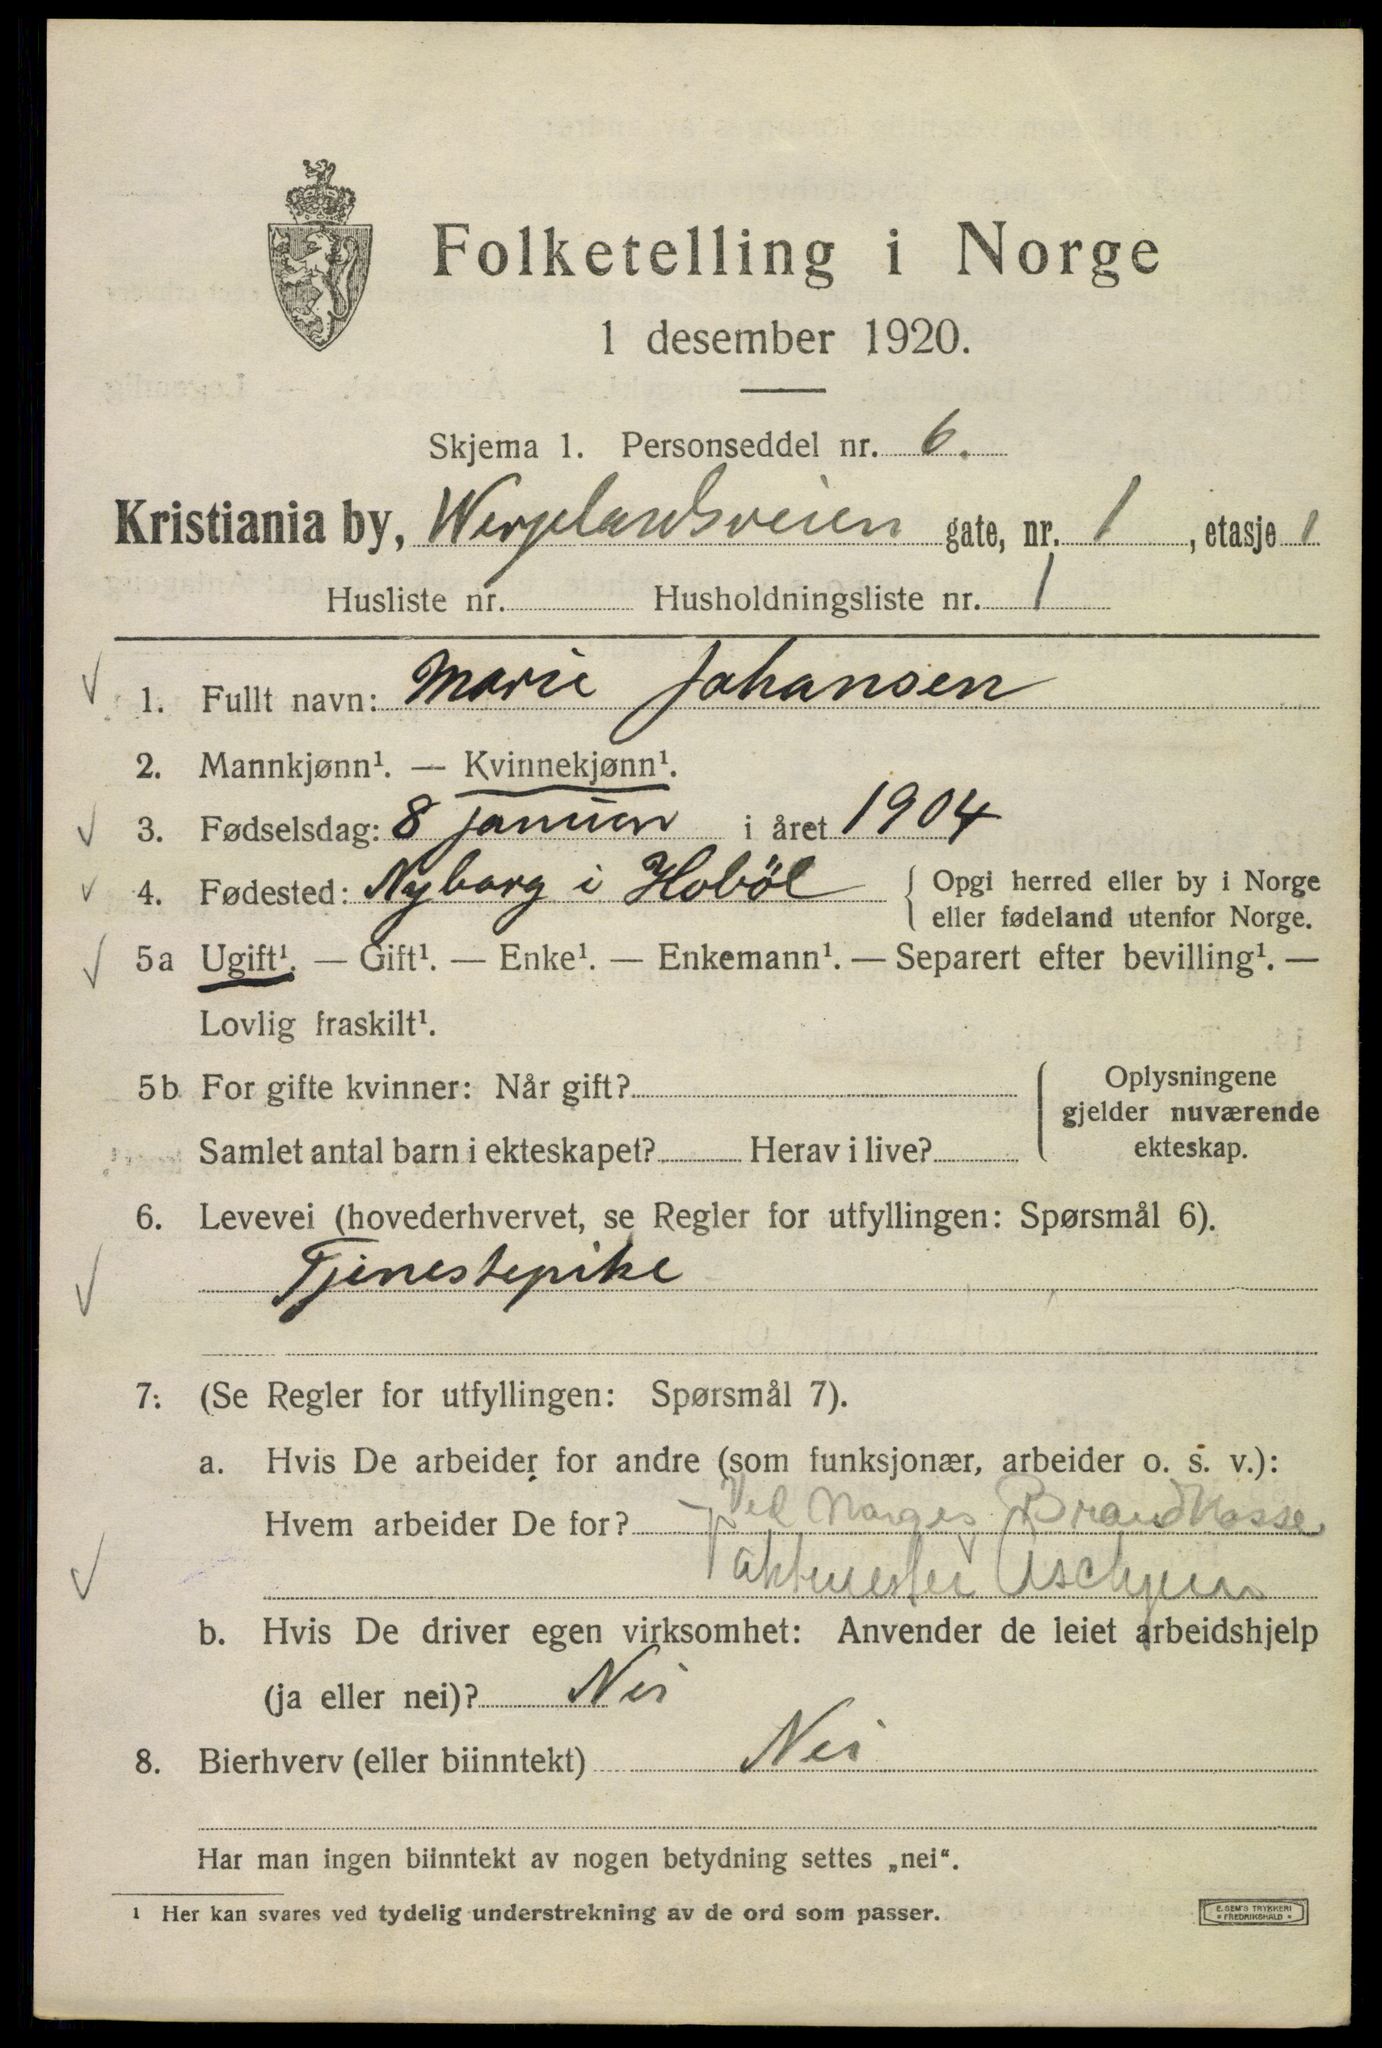 Folketelling i Norge
1 desember 1920.
Skjema 1. Personseddel nr. 6.
Kristiania by, Wergelandsveien gate, nr. 1, etasje 1
Husliste nr. Husholdningsliste nr. 1
1. Fullt navn: Marie Johansen
2. Mannkjønn¹. — Kvinnekjønn¹.
3. Fødselsdag: 8 januar i året 1904
4. Fødested: Nyborg i Hobøl { Opgi herred eller by i Norge
eller fødeland utenfor Norge.
5a Ugift¹. — Gift¹. — Enke¹. — Enkemann¹. — Separert efter bevilling¹. —
Lovlig fraskilt¹.
5b For gifte kvinner: Når gift? { Oplysningene
gjelder nuværende
Samlet antal barn i ekteskapet? Herav i live? ekteskap.
6. Levevei (hovederhvervet, se Regler for utfyllingen: Spørsmål 6).
Tjenestepike
7. (Se Regler for utfyllingen: Spørsmål 7).
a. Hvis De arbeider for andre (som funksjonær, arbeider o. s. v.):
Hvem arbeider De for? Ved Norges Brandkasse
Vaktmester
b. Hvis De driver egen virksomhet: Anvender de leiet arbeidshjelp
(ja eller nei)? Nei
8. Bierhverv (eller biinntekt) Nei
Har man ingen biinntekt av nogen betydning settes „nei“.
¹ Her kan svares ved tydelig understrekning av de ord som passer.
E. SEM'S TRYKKERI
* FREDRIKSHALD *